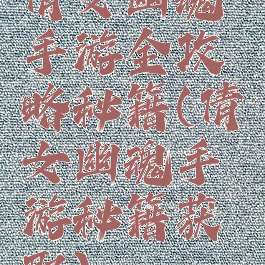 倩女幽魂
手游全攻
略秘籍(倩
女幽魂手
游秘籍获
取)